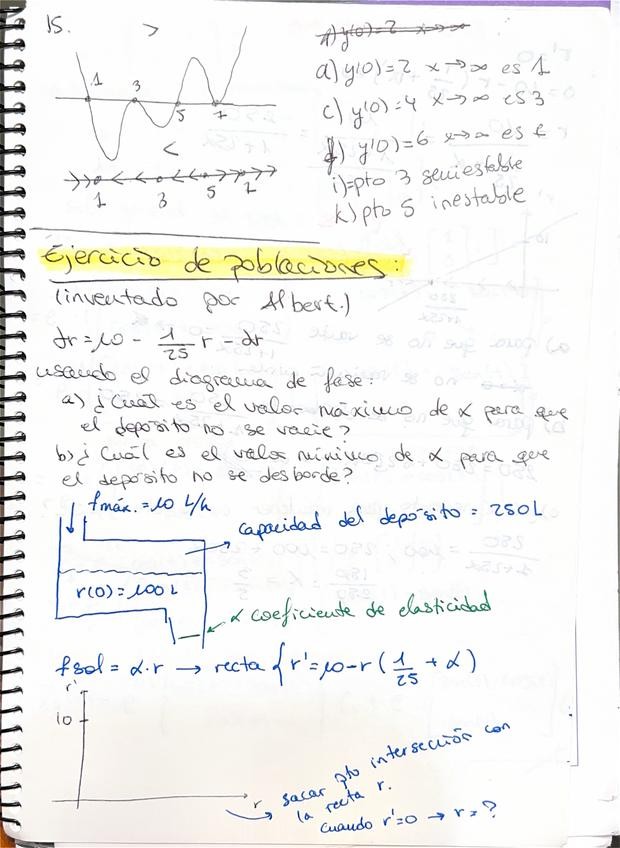 15.
>
1 3 5 7
<
1 3 5 7
a) y(0)=2 x→∞ es 1
c) y'(0)=4 x→∞ es 3
f) y'(0)=6 x→∞ es
i)=pto 3 semiestable
k) pto 5 inestable
Ejercicio de poblaciones:
(inventado por Albert.)
dr=10 - 1/25 r - αr
usando el diagrama de fase:
a) ¿Cuál es el valor máximo de α para que
el depósito no se vacíe?
b) ¿Cuál es el valor mínimo de α para que
el depósito no se desborde?
fmáx.=10 L/h
capacidad del depósito = 250L
r(0)=100 L
α coeficiente de elasticidad
fsol = α·r → recta { r'=10-r(1/25 + α)
r'
10
r
sacar pto intersección con
la recta r.
cuando r'=0 → r=?